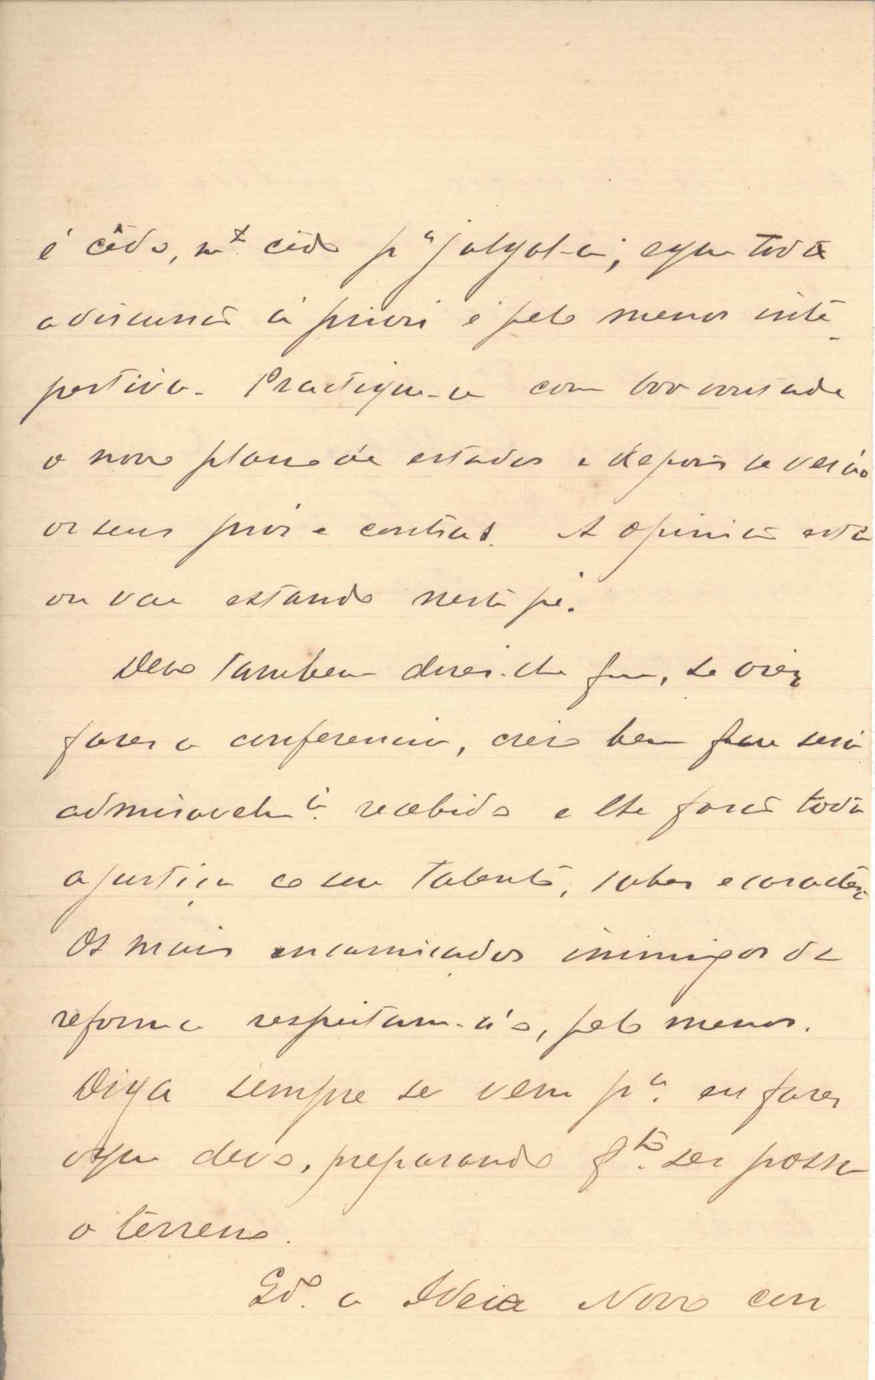 é cêdo, mto cêdo pa julgal-a; e que toda
a discussão á priori é pelo menos inte-
pestiva. Practique-a com boa vontade
o novo plano de estudos e depois se verão
os seus prós e contras. A opinião está
ou vae estando neste pé.
Devo tambem dizer-lhe que, se vier
fazer a conferencia, creio bem que será
admiravelmte recebido e lhe farão toda
a justiça ao seu talento, saber e caracter.
Os mais encarniçados inimigos da
reforma respeitam-no, pelo menos.
Diga sempre se vem pa. eu fazer
o que devo, preparando qto. ser possa
o terreno.
Qdo. a Ideia Nova